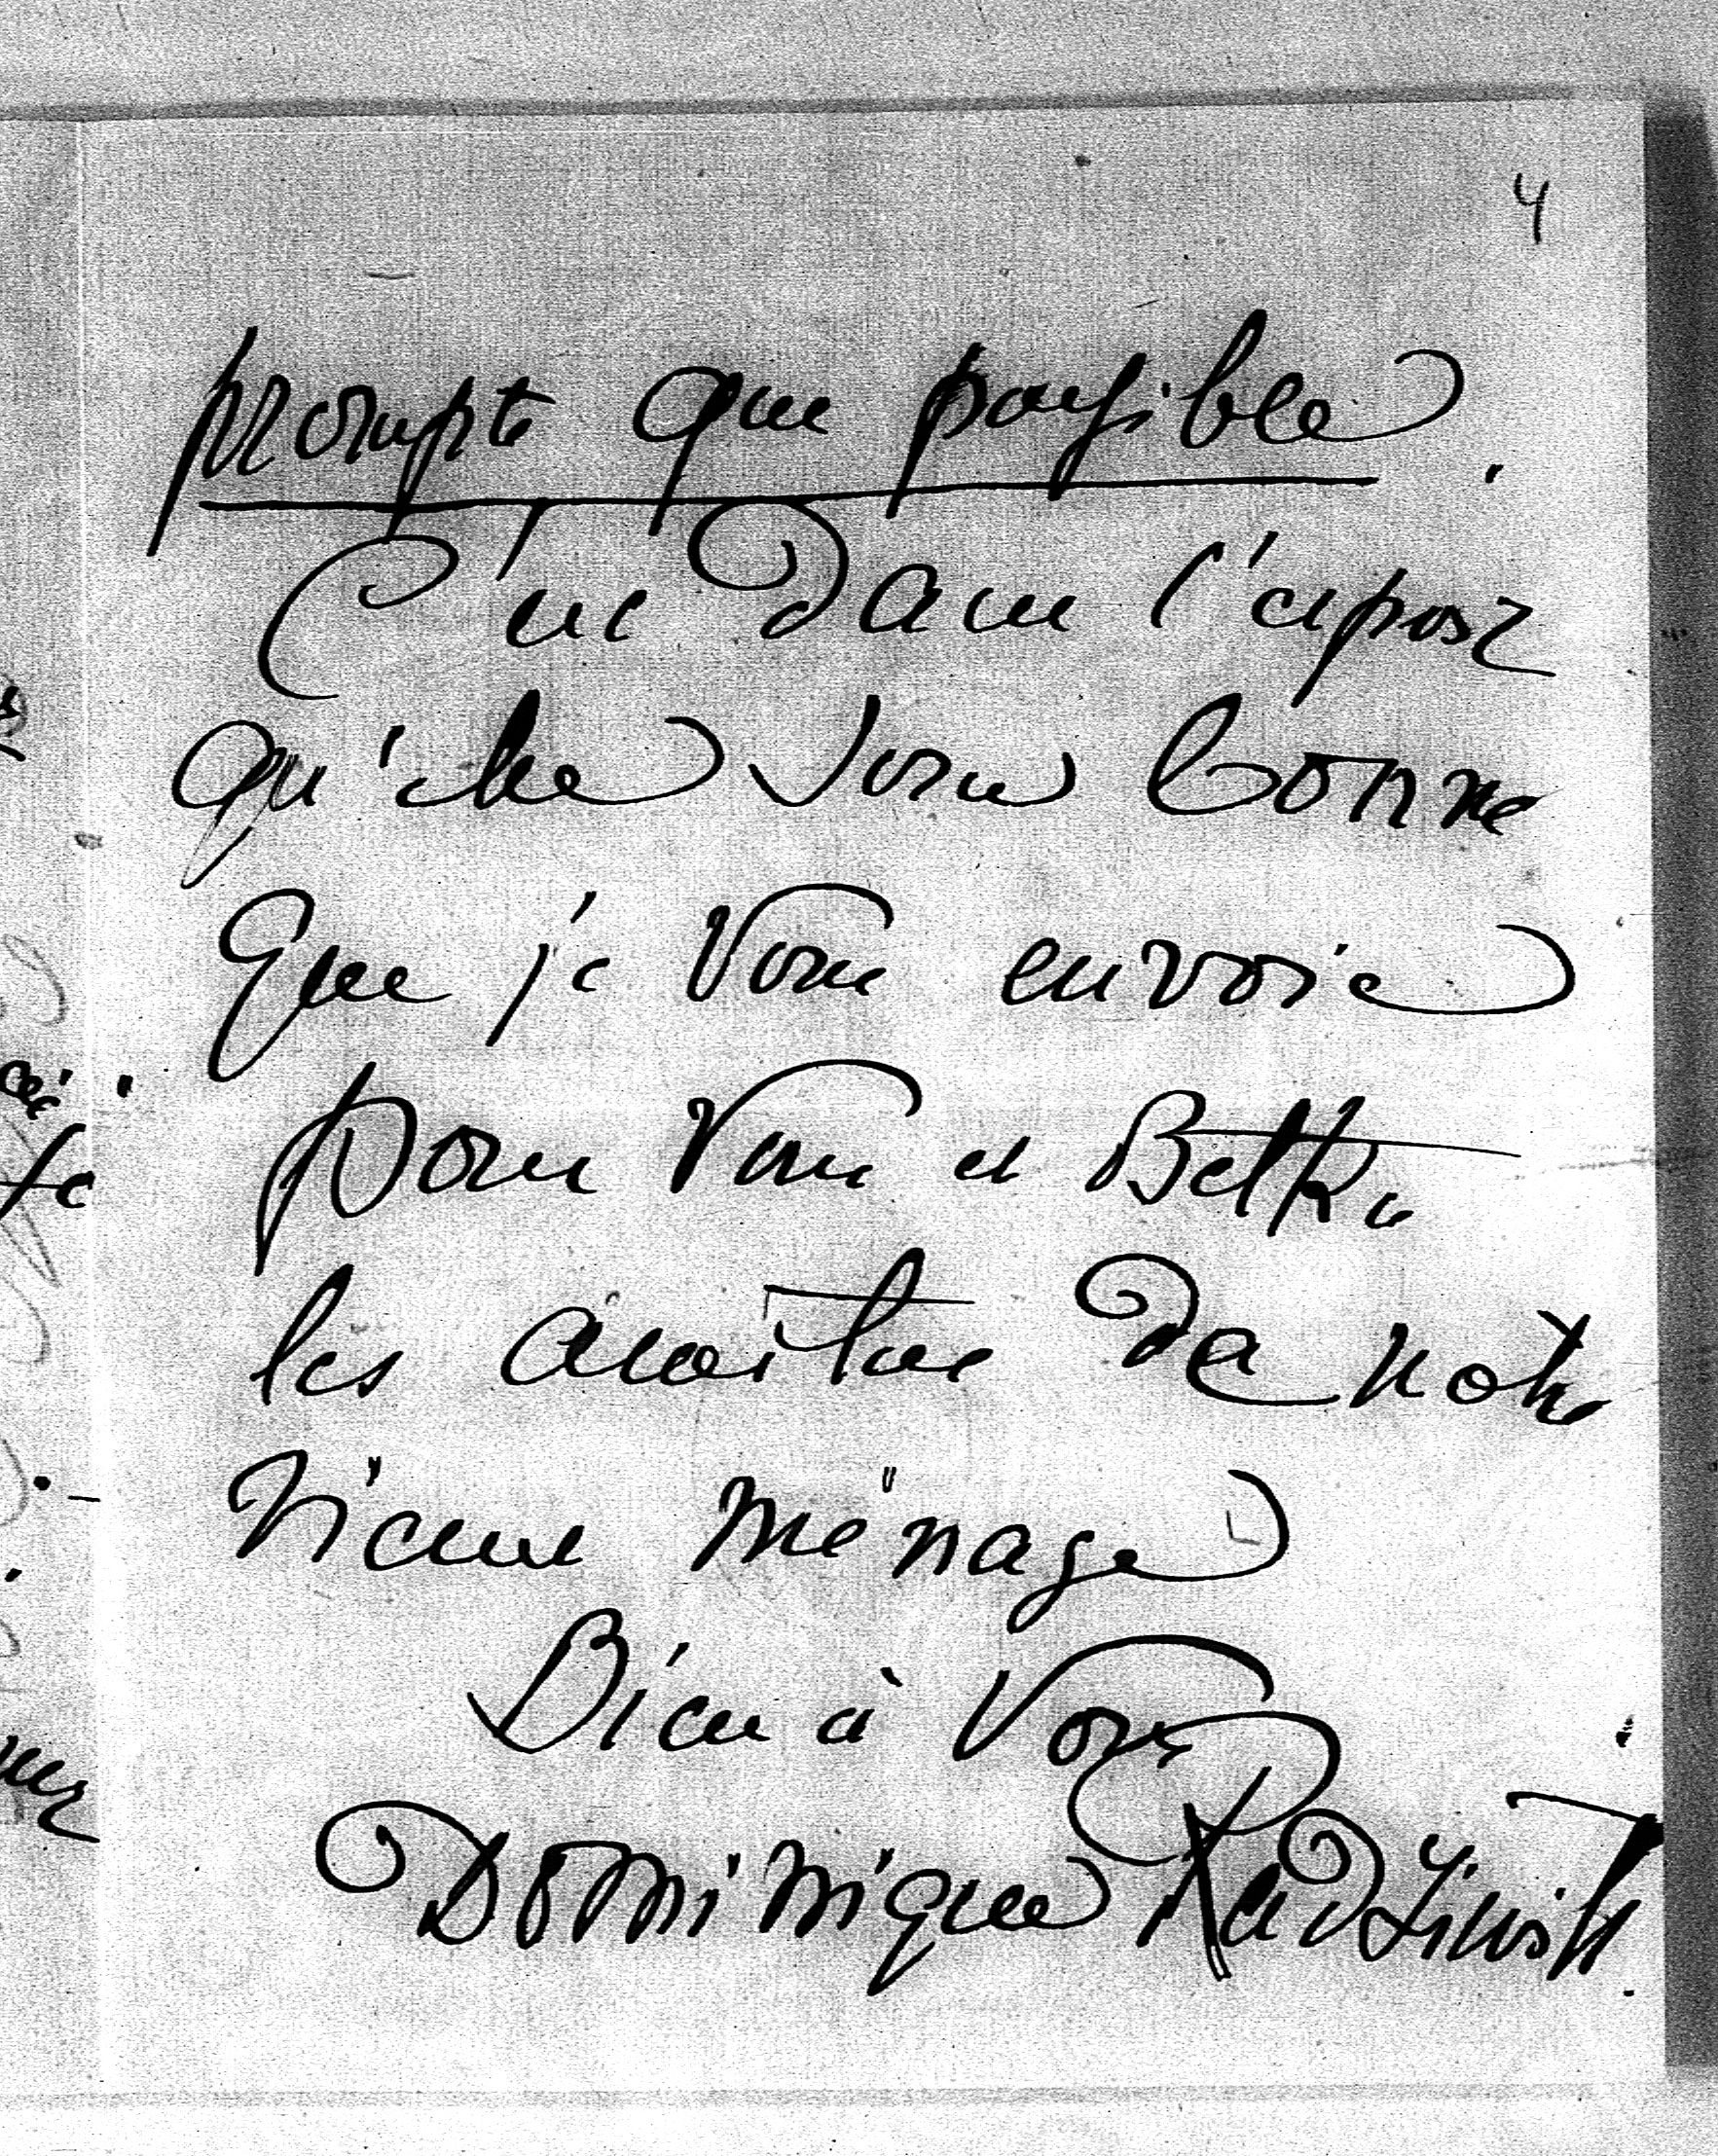 4
prompte que possible.
C'est dans l'espoir
qu'elle sera bonne
que je vous envoie
pour vous et Betka
les amitiés de notre
vieux ménage
Bien à vous
Dominique Radziwill.